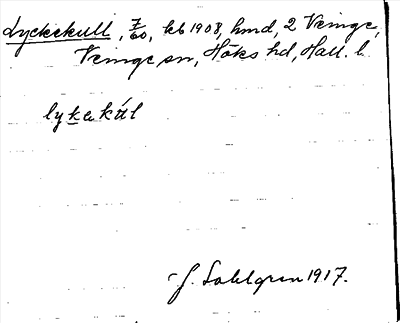 Lyckekull, 7/60, kb 1908, hmd, 2 Veinge,
Veinge sn, Höks hd, Hall. l.
lykekúl
J. Sahlgren 1917.